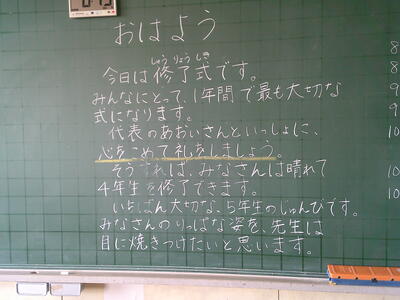 おはよう
しゅうりょうしき
今日は修了式です。
みんなにとって、1年間で最も大切な
式になります。
代表のあおいさんといっしょに、
心をこめて礼をしましょう。
そうすれば、みなさんは晴れて
4年生を修了できます。
いちばん大切な、5年生のじゅんびです。
みなさんのりっぱな姿を、先生は
目に焼きつけたいと思います。
8
8
9
9
10
10
10